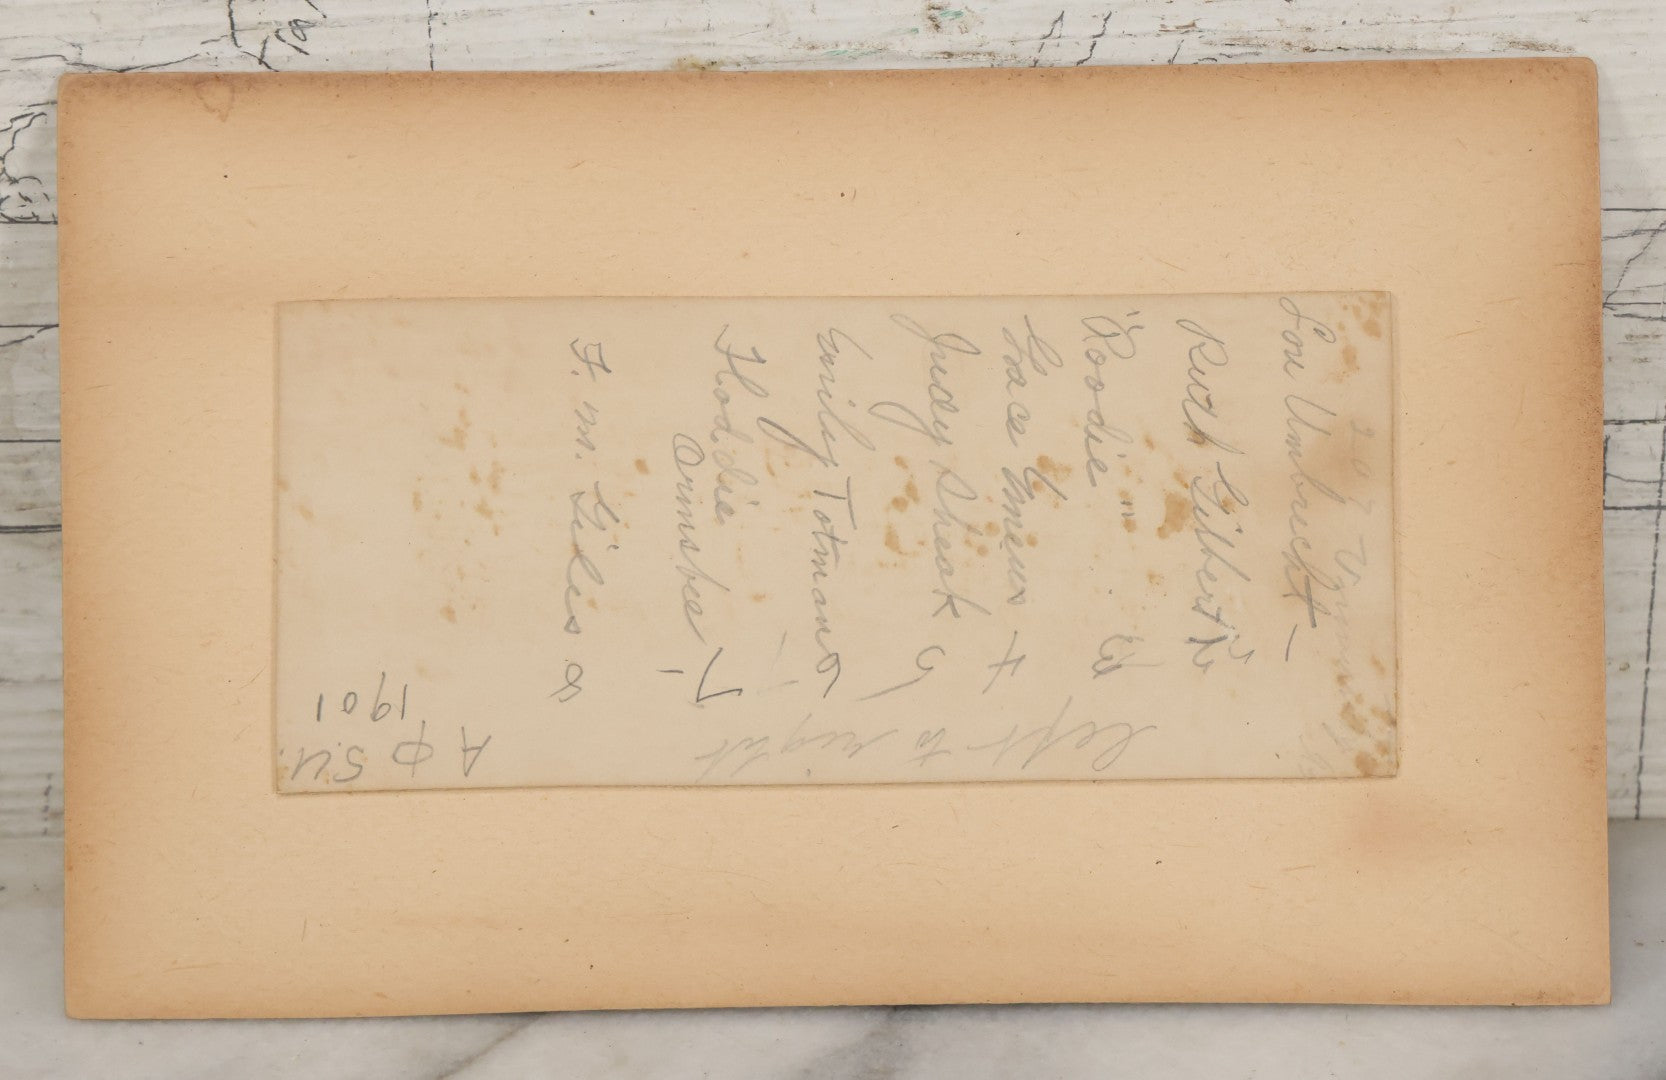 Lou Umbrecht –
Ruth Gilbert
"Roodie"
Grace Emens +
Judy Sheak
Emily Totman
Floddie
Ormsbee
F. M. Giles
left to right
A Φ S.U.
1901